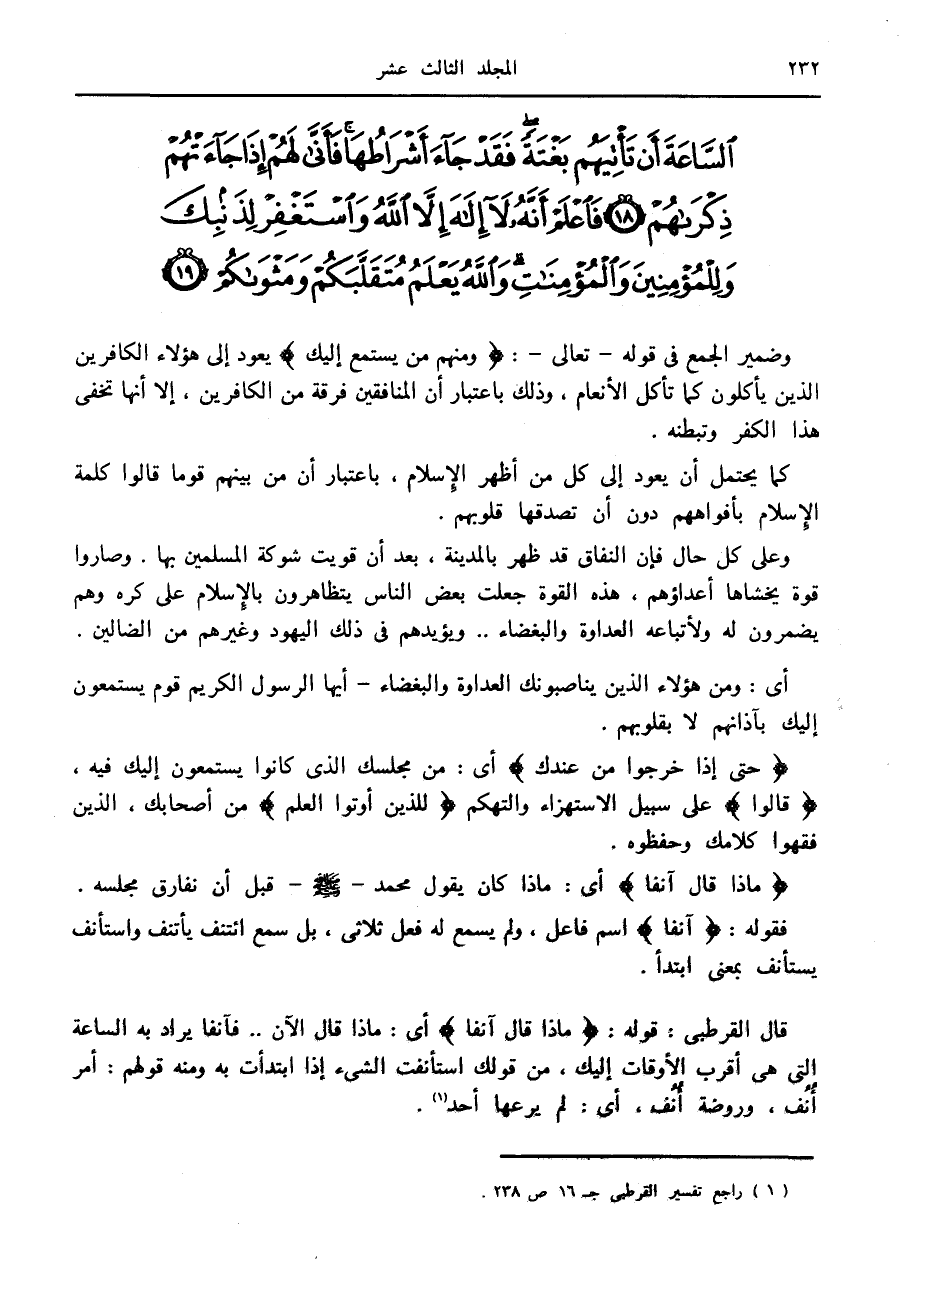 ٢٣٢ المجلد الثالث عشر
ٱلسَّاعَةَ أَن تَأْتِيَهُم بَغْتَةً ۖ فَقَدْ جَآءَ أَشْرَاطُهَا ۚ فَأَنَّىٰ لَهُمْ إِذَا جَآءَتْهُمْ
ذِكْرَىٰهُمْ ﴿١٨﴾ فَٱعْلَمْ أَنَّهُۥ لَآ إِلَٰهَ إِلَّا ٱللَّهُ وَٱسْتَغْفِرْ لِذَنۢبِكَ
وَلِلْمُؤْمِنِينَ وَٱلْمُؤْمِنَٰتِ ۗ وَٱللَّهُ يَعْلَمُ مُتَقَلَّبَكُمْ وَمَثْوَىٰكُمْ ﴿١٩﴾
وضمير الجمع فى قوله - تعالى - : ﴿ ومنهم من يستمع إليك ﴾ يعود إلى هؤلاء الكافرين
الذين يأكلون كما تأكل الأنعام ، وذلك باعتبار أن المنافقين فرقة من الكافرين ، إلا أنها تخفى
هذا الكفر وتبطنه .
كما يحتمل أن يعود إلى كل من أظهر الإسلام ، باعتبار أن من بينهم قوما قالوا كلمة
الإسلام بأفواههم دون أن تصدقها قلوبهم .
وعلى كل حال فإن النفاق قد ظهر بالمدينة ، بعد أن قويت شوكة المسلمين بها . وصاروا
قوة يخشاها أعداؤهم ، هذه القوة جعلت بعض الناس يتظاهرون بالإسلام على كره وهم
يضمرون له ولأتباعه العداوة والبغضاء .. ويؤيدهم فى ذلك اليهود وغيرهم من الضالين .
أى : ومن هؤلاء الذين يناصبونك العداوة والبغضاء - أيها الرسول الكريم قوم يستمعون
إليك بآذانهم لا بقلوبهم .
﴿ حتى إذا خرجوا من عندك ﴾ أى : من مجلسك الذى كانوا يستمعون إليك فيه ،
﴿ قالوا ﴾ على سبيل الاستهزاء والتهكم ﴿ للذين أوتوا العلم ﴾ من أصحابك ، الذين
فقهوا كلامك وحفظوه .
﴿ ماذا قال آنفا ﴾ أى : ماذا كان يقول محمد - ﷺ - قبل أن نفارق مجلسه .
فقوله : ﴿ آنفا ﴾ اسم فاعل ، ولم يسمع له فعل ثلاثى ، بل سمع ائتنف يأتنف واستأنف
يستأنف بمعنى ابتدأ .
قال القرطبى : قوله : ﴿ ماذا قال آنفا ﴾ أى : ماذا قال الآن .. فآنفا يراد به الساعة
التى هى أقرب الأوقات إليك ، من قولك استأنفت الشىء إذا ابتدأت به ومنه قولهم : أمر
أُنُف ، وروضة أُنُف ، أى : لم يرعها أحد(١) .
( ١ ) راجع تفسير القرطبى جـ ١٦ ص ٢٣٨ .